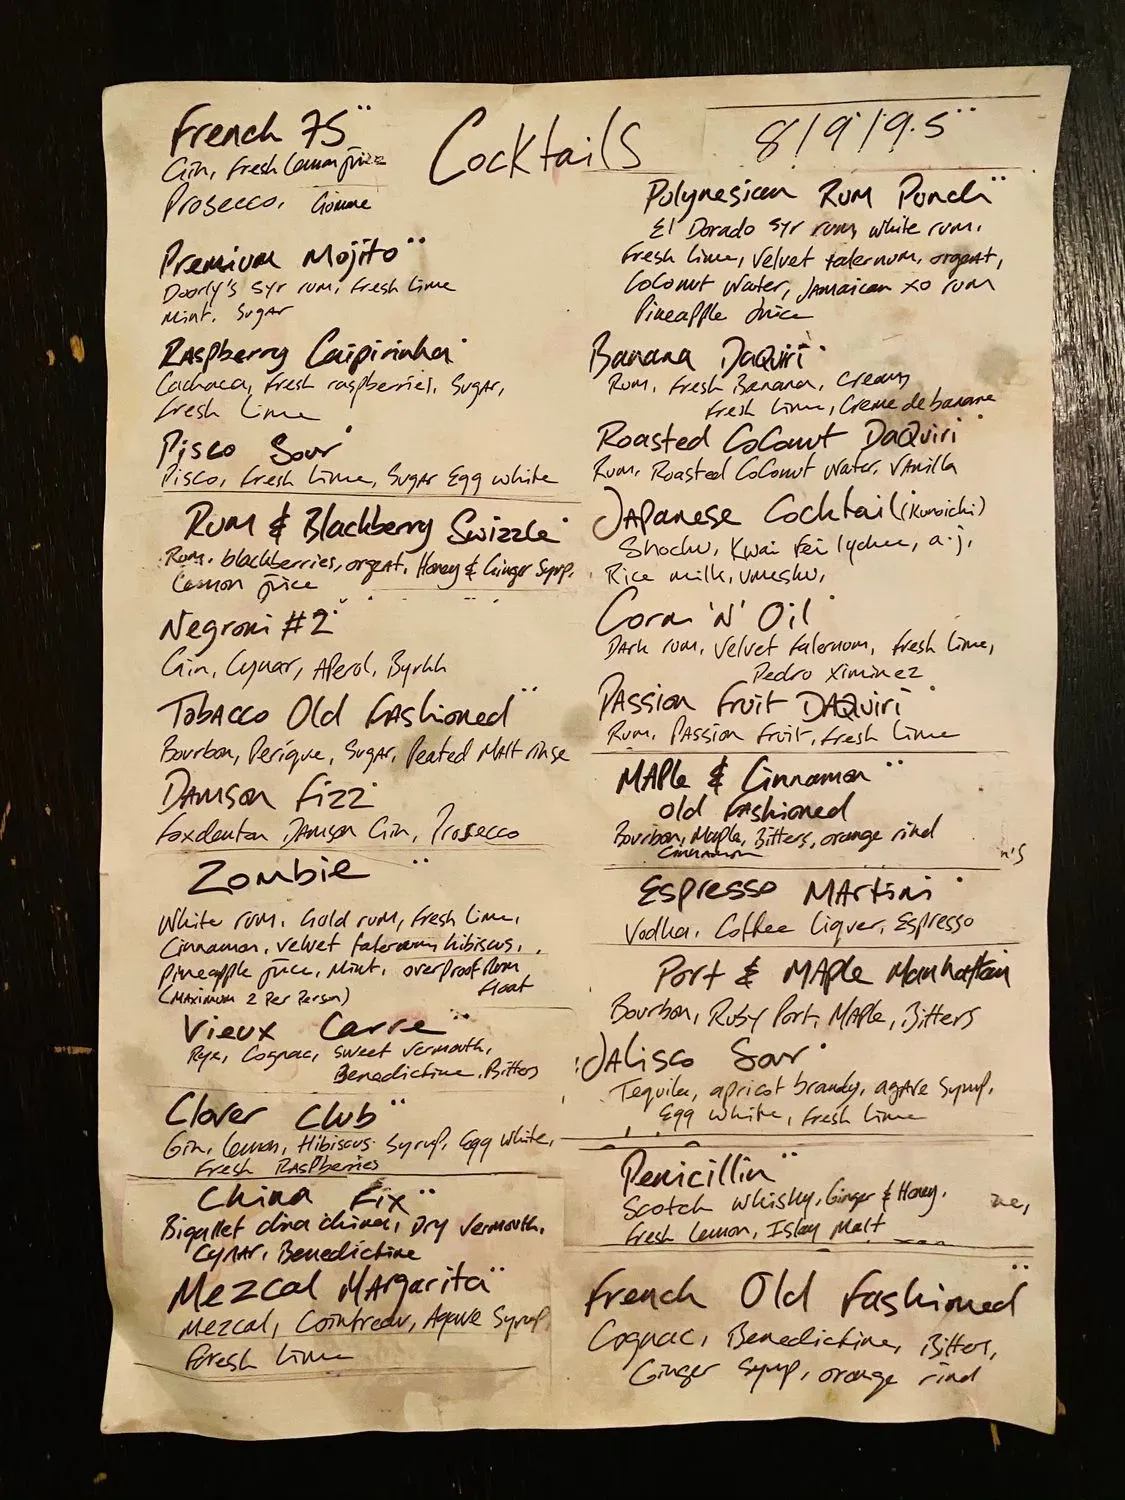 Cocktails
8/9/9.5¨
French 75¨
Gin, Fresh Lemon juice
Prosecco, Gomme
Premium Mojito¨
Doorly's 5yr rum, Fresh Lime
Mint, Sugar
Raspberry Caipirinha˙
Cachaca, Fresh raspberries, Sugar,
Fresh Lime
Pisco Sour˙
Pisco, Fresh Lime, Sugar Egg white
Rum & Blackberry Swizzle˙
Rum, blackberries, orgeat, Honey & Ginger Syrup,
Lemon juice
Negroni #2˙
Gin, Cynar, Aperol, Byrhh
Tobacco Old Fashioned¨
Bourbon, Perique, Sugar, Peated Malt rinse
Damson Fizz˙
Foxdenton Damson Gin, Prosecco
Zombie¨
White rum, Gold rum, Fresh Lime,
Cinnamon, Velvet falernum, hibiscus,
Pineapple juice, Mint, overproof Rum
float
(Maximum 2 Per Person)
Vieux Carre¨
Rye, Cognac, Sweet Vermouth,
Benedictine, Bitters
Clover Club¨
Gin, Lemon, Hibiscus Syrup, Egg White,
Fresh Raspberries
China Fix¨
Bigallet china china, Dry Vermouth,
Cynar, Benedictine
Mezcal Margarita¨
Mezcal, Cointreau, Agave Syrup,
Fresh Lime
Polynesian Rum Punch¨
El Dorado 5yr rum, white rum,
Fresh Lime, Velvet falernum, orgeat,
Coconut Water, Jamaican XO rum
Pineapple Juice
Banana Daquiri˙
Rum, Fresh Banana, Cream,
Fresh Lime, Creme de banane
Roasted Coconut Daquiri˙
Rum, Roasted Coconut Water, Vanilla
Japanese Cocktail (Kunoichi)
Shochu, Kwai Fei lychee, a.j,
Rice milk, Umeshu,
Corn 'N' Oil˙
Dark rum, Velvet falernum, Fresh Lime,
Pedro Ximinez
Passion Fruit Daquiri˙
Rum, Passion Fruit, Fresh Lime
Maple & Cinnamon¨
Old Fashioned
Bourbon, Maple, Bitters, orange rind
Cinnamon
n's
Espresso Martini˙
Vodka, Coffee Liquer, Espresso
Port & Maple Manhattan
Bourbon, Ruby Port, Maple, Bitters
Jalisco Sour˙
Tequila, apricot brandy, agave Syrup,
Egg White, Fresh Lime
Penicillin¨
Scotch Whisky, Ginger & Honey,
Fresh Lemon, Islay Malt
ne,
French Old Fashioned¨
Cognac, Benedictine, Bitters,
Ginger Syrup, orange rind